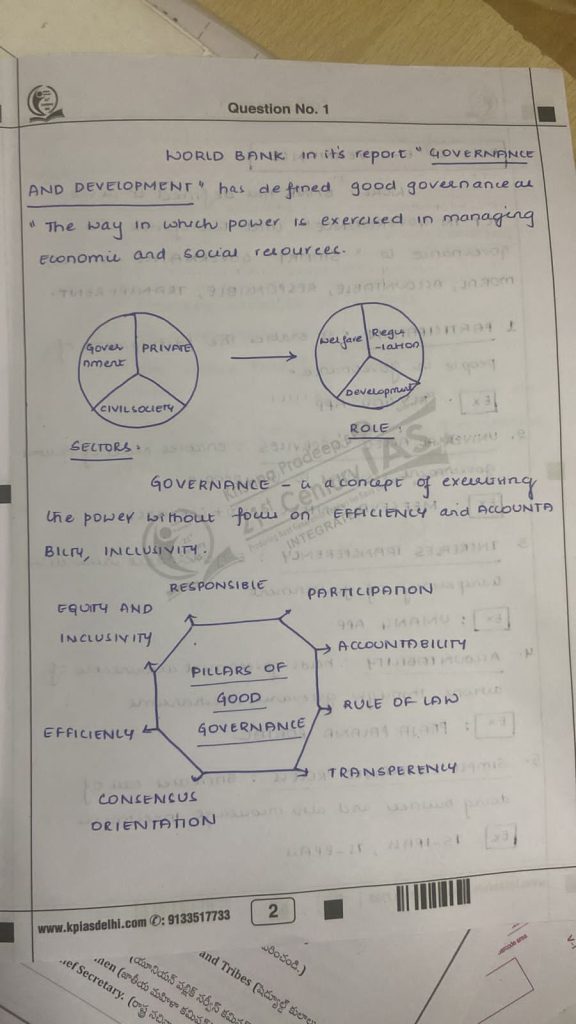 Question No. 1
WORLD BANK in it's report "GOVERNANCE
AND DEVELOPMENT" has defined good governance as
"The way in which power is exercised in managing
Economic and social resources.
Gover
nment
PRIVATE
CIVIL SOCIETY
Welfare
Regu
-lation
Development
SECTORS:
ROLE:
GOVERNANCE - is a concept of excercising
the power without focus on EFFICIENCY and ACCOUNTA
BILTY, INCLUSIVITY.
Khuang Pradeep's
21st Century IAS
INTEGRAT
RESPONSIBLE
PARTICIPATION
EQUITY AND
INCLUSIVITY
ACCOUNTABILITY
PILLARS OF
GOOD
GOVERNANCE
RULE OF LAW
EFFICIENCY
TRANSPERENCY
CONSENCUS
ORIENTATION
www.kpiasdelhi.com ✆: 9133517733
2
and Tribes (షెడ్యూల్డ్ కులాలు
men (జాతీయ మహిళా కమిషన్
ief Secretary. (రాష్ట్ర